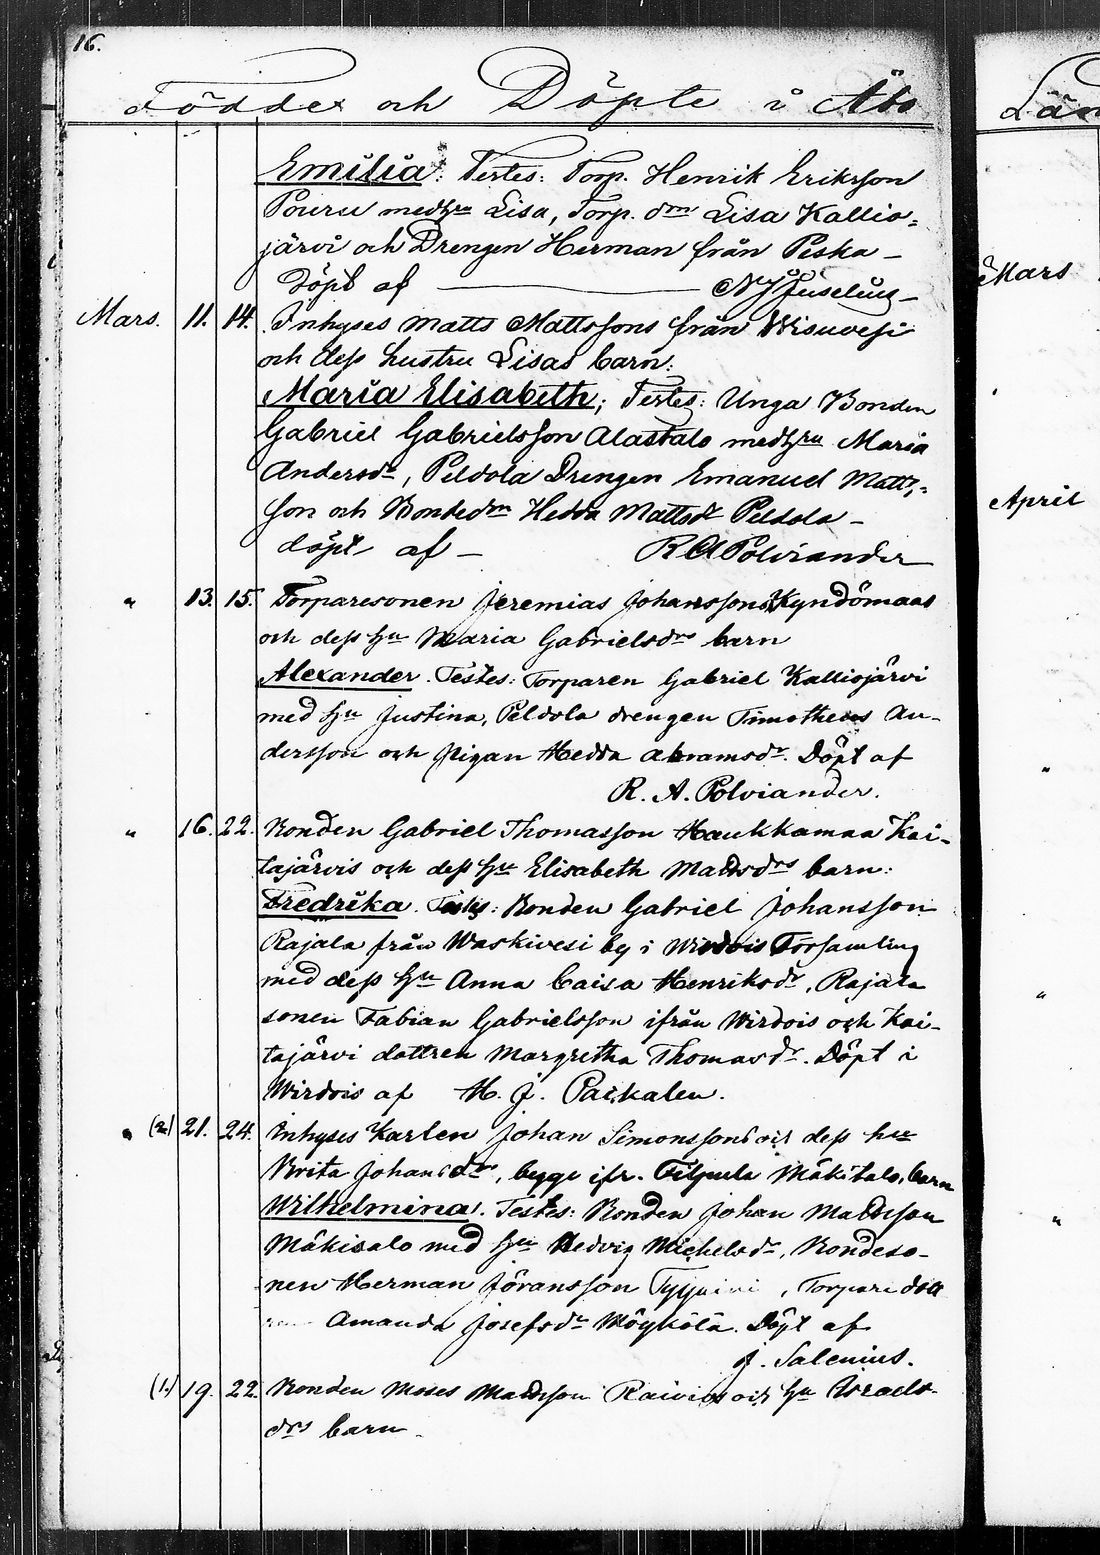 16.
Födder och Döpte i Åbo
Län
Emilia: Testes: Torp. Henrik Eriksson
Pouru med hru Lisa, Torp. drn Lisa Kallio-
järvi och Drengen Herman från Peska –
Döpt af N J Juselius –
Mars. 11. 14. Inhyses Matts Mattssons från Wisuvesi
och dess hustru Lisas barn:
Maria Elisabeth; Testes: Unga Bonden
Gabriel Gabrielsson Alastalo med hru Maria
Andersdr, Peldola Drengen Emanuel Matts-
son och Bondedrn Hedda Mattsdr Peldola –
döpt af – R A Polviander
" 13. 15. Torparesonen Jeremias Johanssons Kyndömaas
och dess hu Maria Gabrielsdrs barn
Alexander. Testes: Torparen Gabriel Kalliojärvi
med hu Justina, Peldola drengen Timotheus An-
dersson och Pigan Hedda Abramsdr. Döpt af
R. A. Polviander.
" 16. 22. Bonden Gabriel Thomasson Haukkamaa Kai-
tajärvis och dess hu Elisabeth Mattsdrs barn:
Fredrika. Testes: Bonden Gabriel Johansson
Rajala från Waskivesi by i Wirdois Församling
med dess hu Anna Caisa Henriksdr, Rajala
sonen Fabian Gabrielsson ifrån Wirdois och Kai-
tajärvi dottren Margretha Thomasdr. Döpt i
Wirdois af H. J. Packalen.
" (2.) 21. 24. Inhyses Karlen Johan Simonssons och dess hu
Brita Johansdrs, bygge ifr. Filpula Mäkitalo, barn
Wilhelmina. Testes: Bonden Johan Mattsson
Mäkisalo med hu Hedvig Michelsdr, Bondeso-
nen Herman Jöransson , Torpare dott
Amanda Josefsdr Möykölä. Döpt af
J. Salenius.
(1.) 19. 22. Bonden Moses Mattsson och hu Israels-
drs barn.
Mars
April
"
"
"